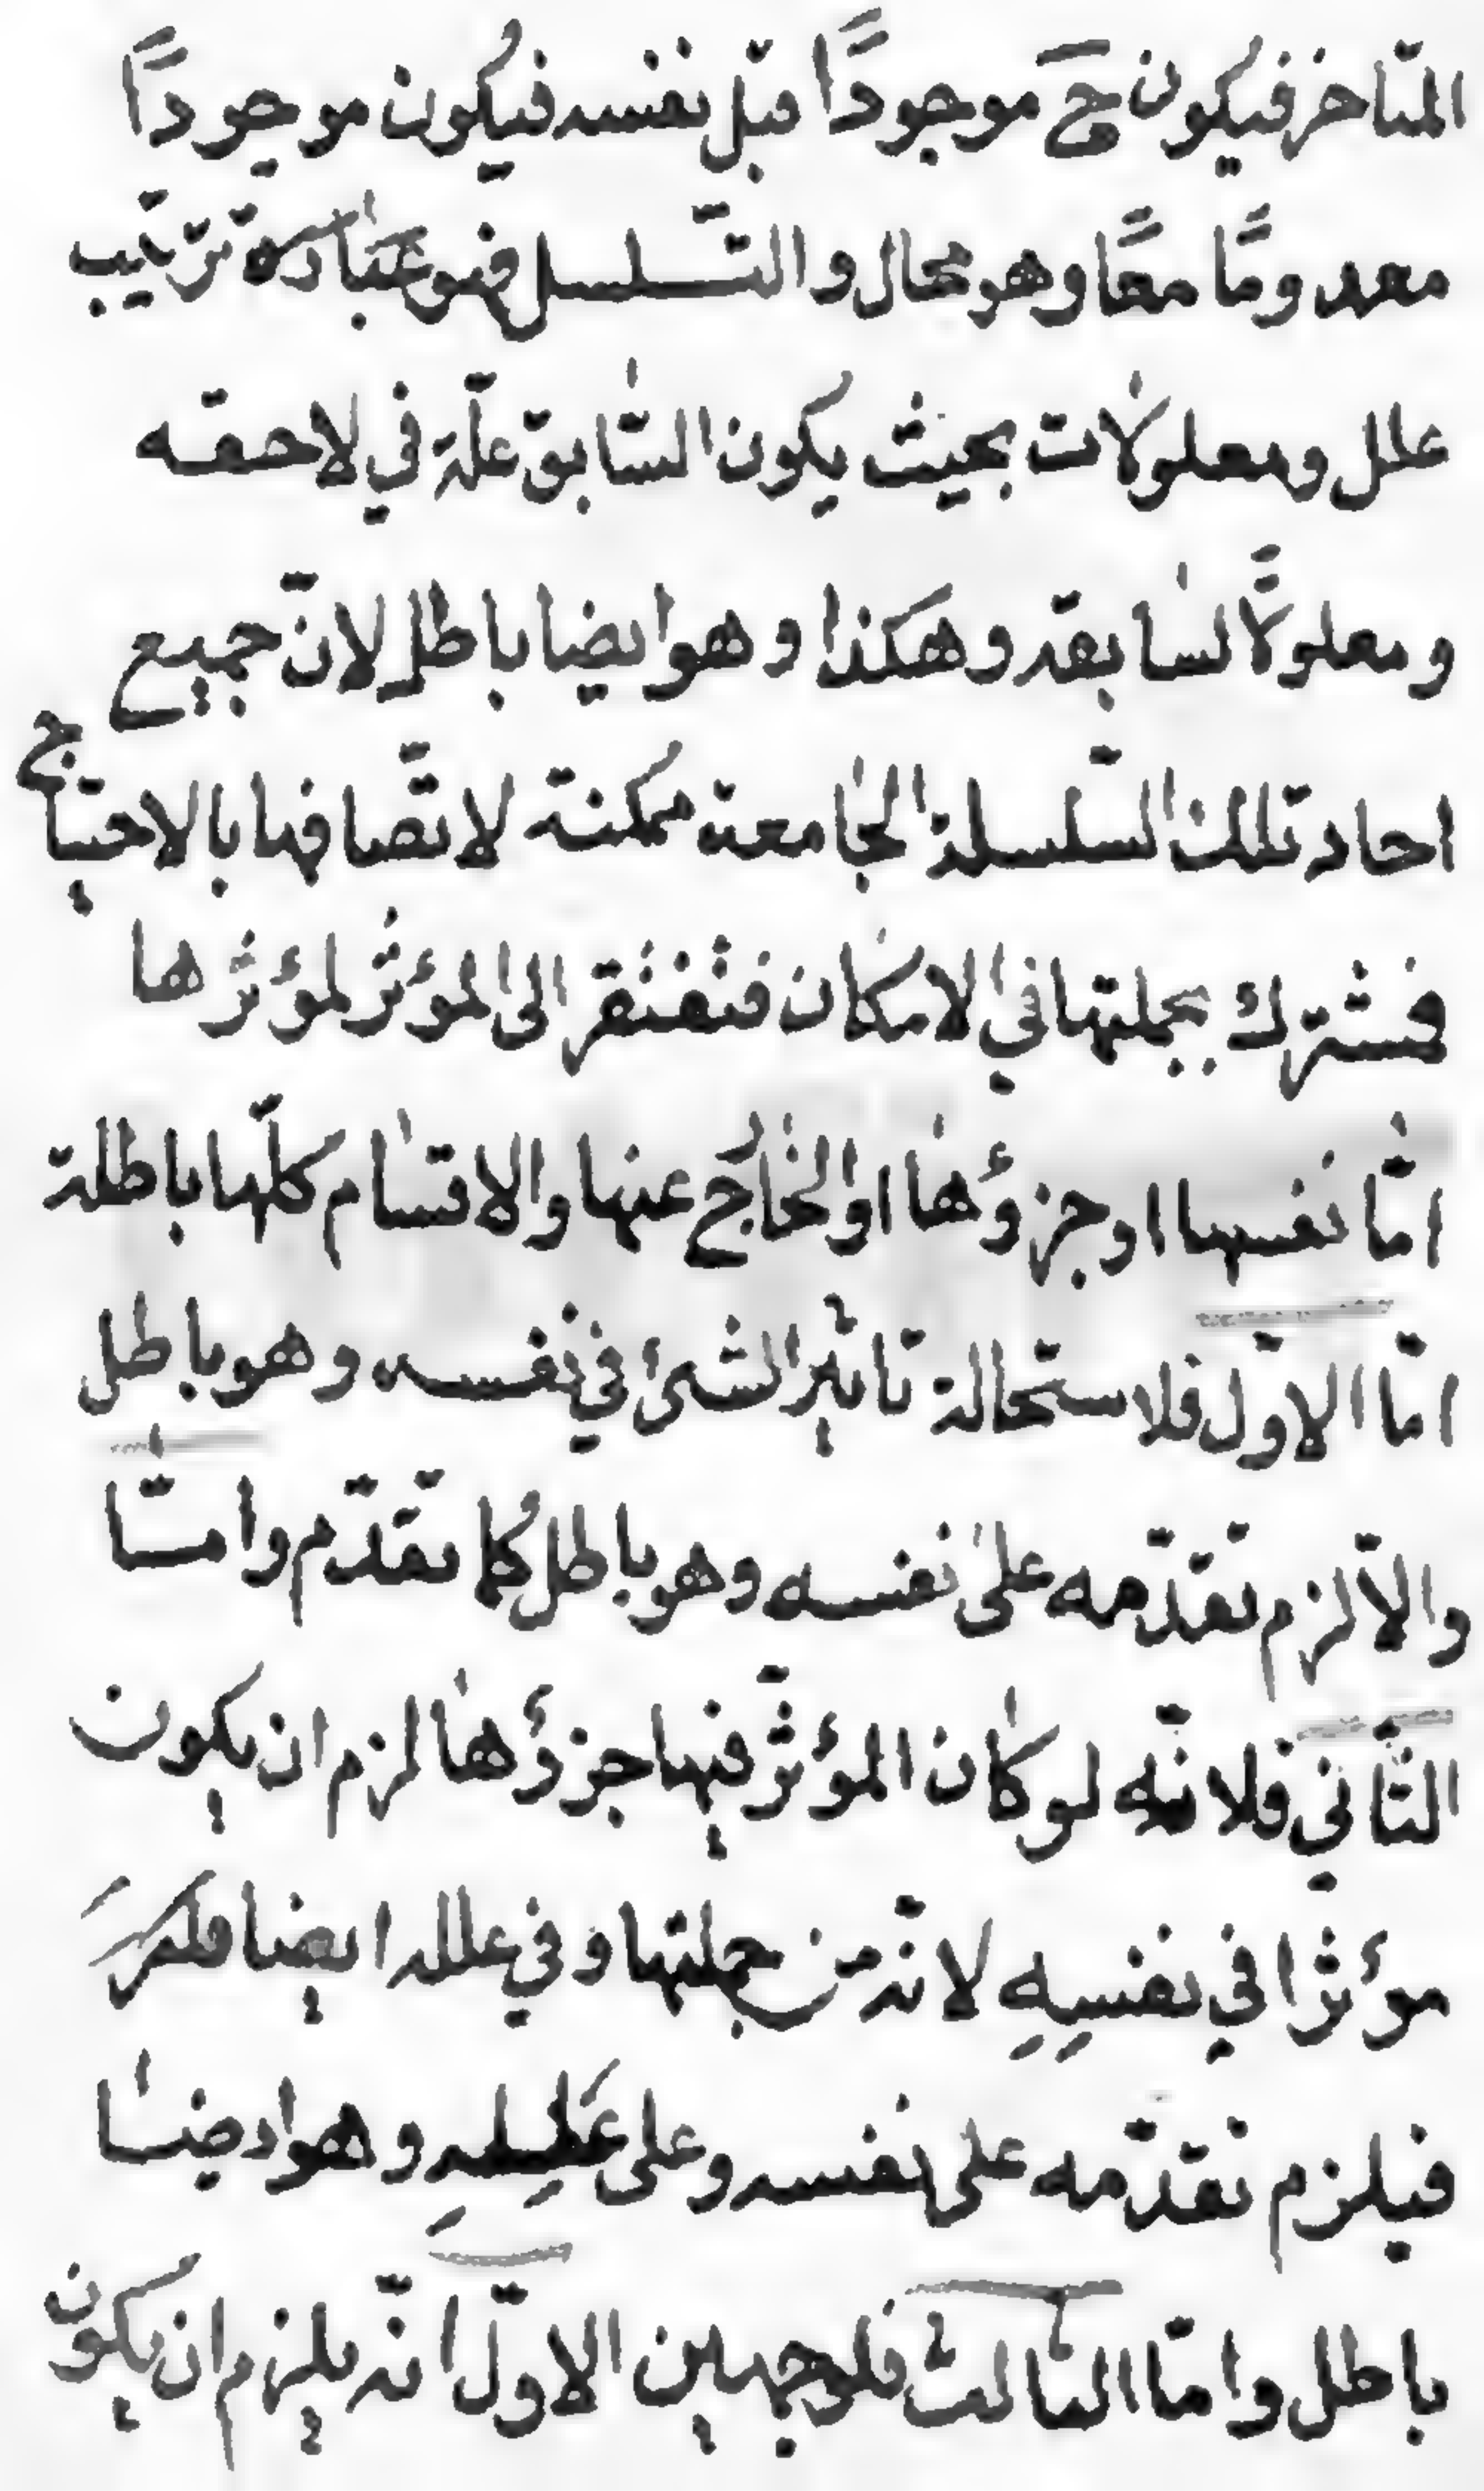 المتاخر فيكون ح موجودًا قبل نفسه فيكون موجودًا
معدومًا معًا وهو محال والتّسلسل فهو عبارة ترتيب
علل ومعلولات بحيث يكون السّابق علّة في لاحقه
ومعلولًا لسابقه وهكذا وهو ايضا باطل لانّ جميع
احاد تلك السّلسلة الجامعة ممكنة لاتّصافها بالاحتياج
فتشترك بجملتها في الامكان فتفتقر الى المؤثر لمؤثرها
امّا نفسها او جزؤها او الخارج عنها والاقسام كلّها باطلة
امّا الاوّل فلاستحالة تاثير الشئ في نفسه وهو باطل
والّا لزم تقدّمه على نفسه وهو باطل كما تقدّم وامّا
الثّاني فلانّه لو كان المؤثّر فيها جزؤها لزم ان يكون
مؤثرا في نفسِهِ لانّه من جملتها وفي علله ايضا
فيلزم تقدّمه على نفسه وعلى عَلِلِهِ وهو ايضا
باطل وامّا الثالث فلوجهين الاوّل انّه يلزم ان يكون